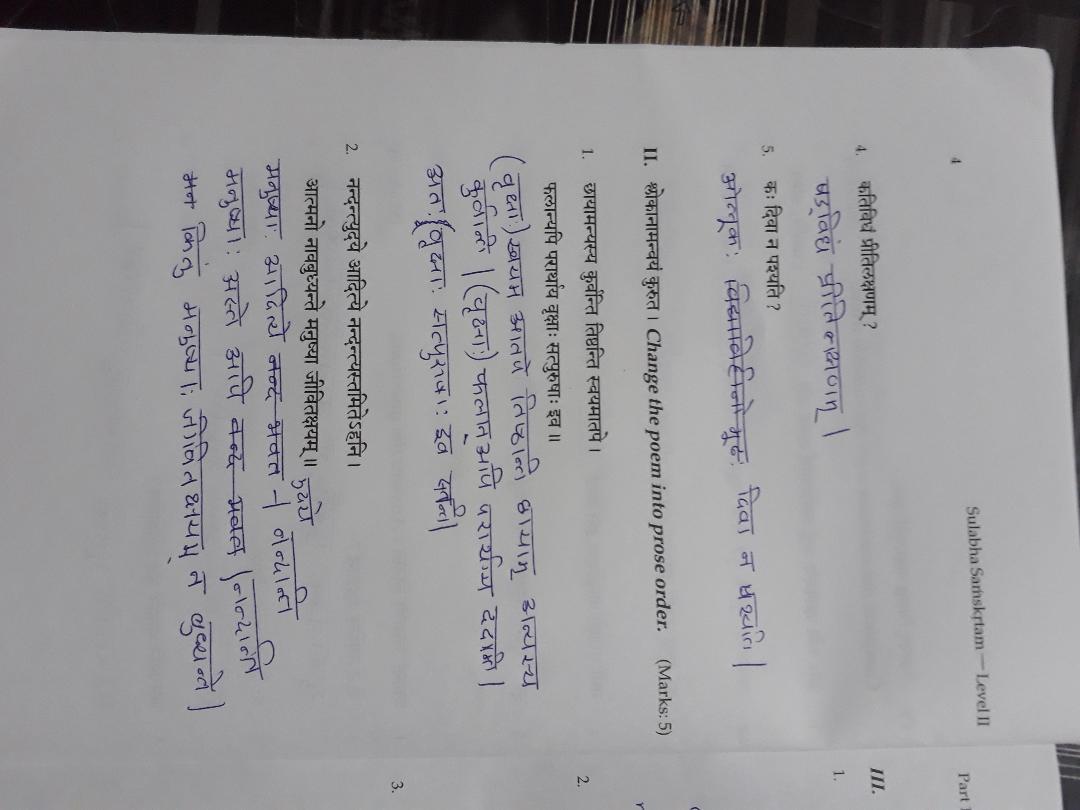 4
Sulabha Saṁskṛtam — Level II
Part 1
4. कतिविधं प्रीतिलक्षणम् ?
षड्विधं प्रीतिलक्षणम् |
5. कः दिवा न पश्यति ?
ओलूकः विद्याविहीनो मूढः दिवा न पश्यति |
II. श्लोकानामन्वयं कुरुत। Change the poem into prose order. (Marks: 5)
1. छायामन्यस्य कुर्वन्ति तिष्ठन्ति स्वयमातपे।
फलान्यपि परार्थाय वृक्षाः सत्पुरुषाः इव॥
(वृक्षाः) स्वयम आतपे तिष्ठन्ति छायाम् अन्यस्य
कुर्वन्ति | (वृक्षाः) फलान् अपि परार्थाय |
अतः वृक्षाः सत्पुरुषाः इव |
2. नन्दन्त्युदये आदित्ये नन्दन्त्यस्तमितेऽहनि।
आत्मनो नावबुध्यन्ते मनुष्या जीवितक्षयम्॥
उदये
मनुष्याः आदित्ये नन्द भवत | नन्दान्ति
मनुष्याः अस्ते आपि नन्द | नन्दान्ति
मन किंतुं मनुष्याः जीवितक्षयम् न बुध्यन्ते |
III.
1.
2.
3.